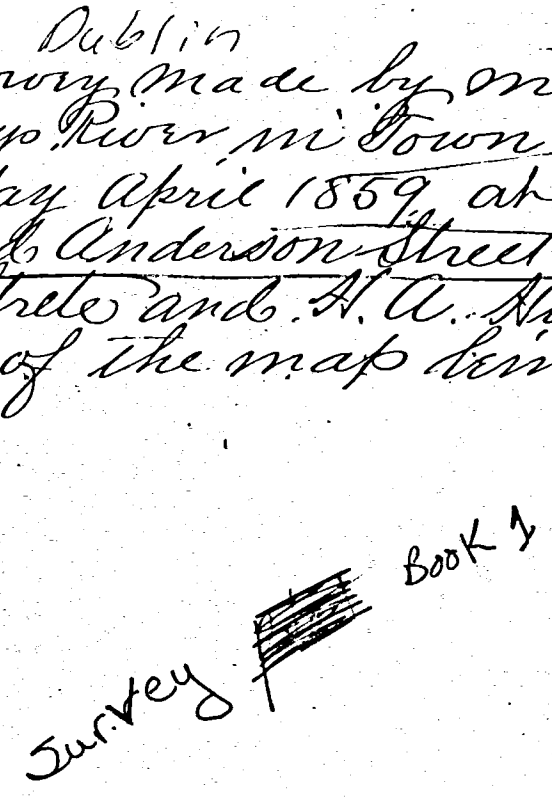 Dublin
rvey made by m
ys River in Town
ay April 1859, at
& Anderson Street
trete and H. A. H
of the map bein
Survey Book 1